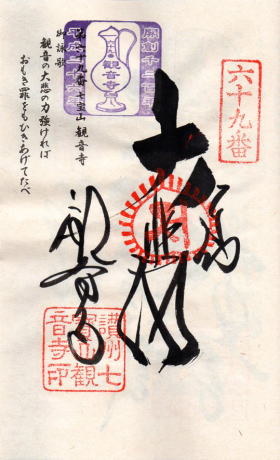 六十九番
奉納
開創千二百年
観音寺
平成二十六年
七宝山 観音寺
御詠歌
観音の大悲の力強ければ
おもき罪をもひきあげてたべ
観音寺
讃州七
宝山観
音寺印